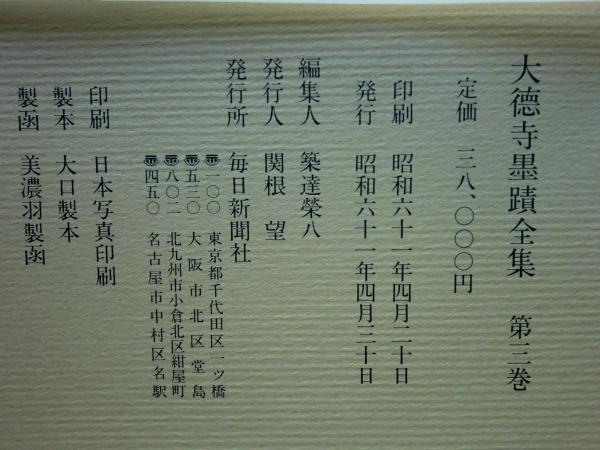 大德寺墨蹟全集　第三巻
定価　三八、〇〇〇円
印刷　昭和六十一年四月二十日
発行　昭和六十一年四月三十日
編集人　築達榮八
発行人　関根　望
発行所　毎日新聞社
〠一〇〇　東京都千代田区一ツ橋
〠五三〇　大阪市北区堂島
〠八〇二　北九州市小倉北区紺屋町
〠四五〇　名古屋市中村区名駅
印刷　日本写真印刷
製本　大口製本
製函　美濃羽製函